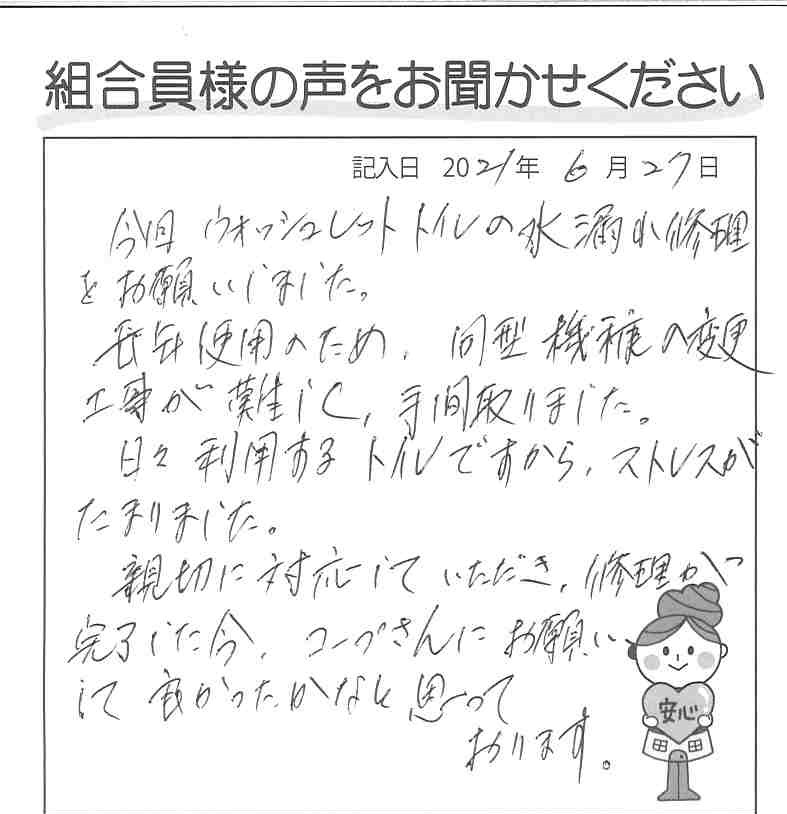 組合員様の声をお聞かせください
記入日 2021年 6月27日
今回 ウォッシュレットトイレの水漏れ修理
をお願いしました。
長年使用のため、同型機種の変更
工事が難しく、手間取りました。
日々利用するトイレですから、ストレスが
たまりました。
親切に対応していただき、修理が
完了した今、コープさんにお願い
して良かったかなと思って
おります。
安心